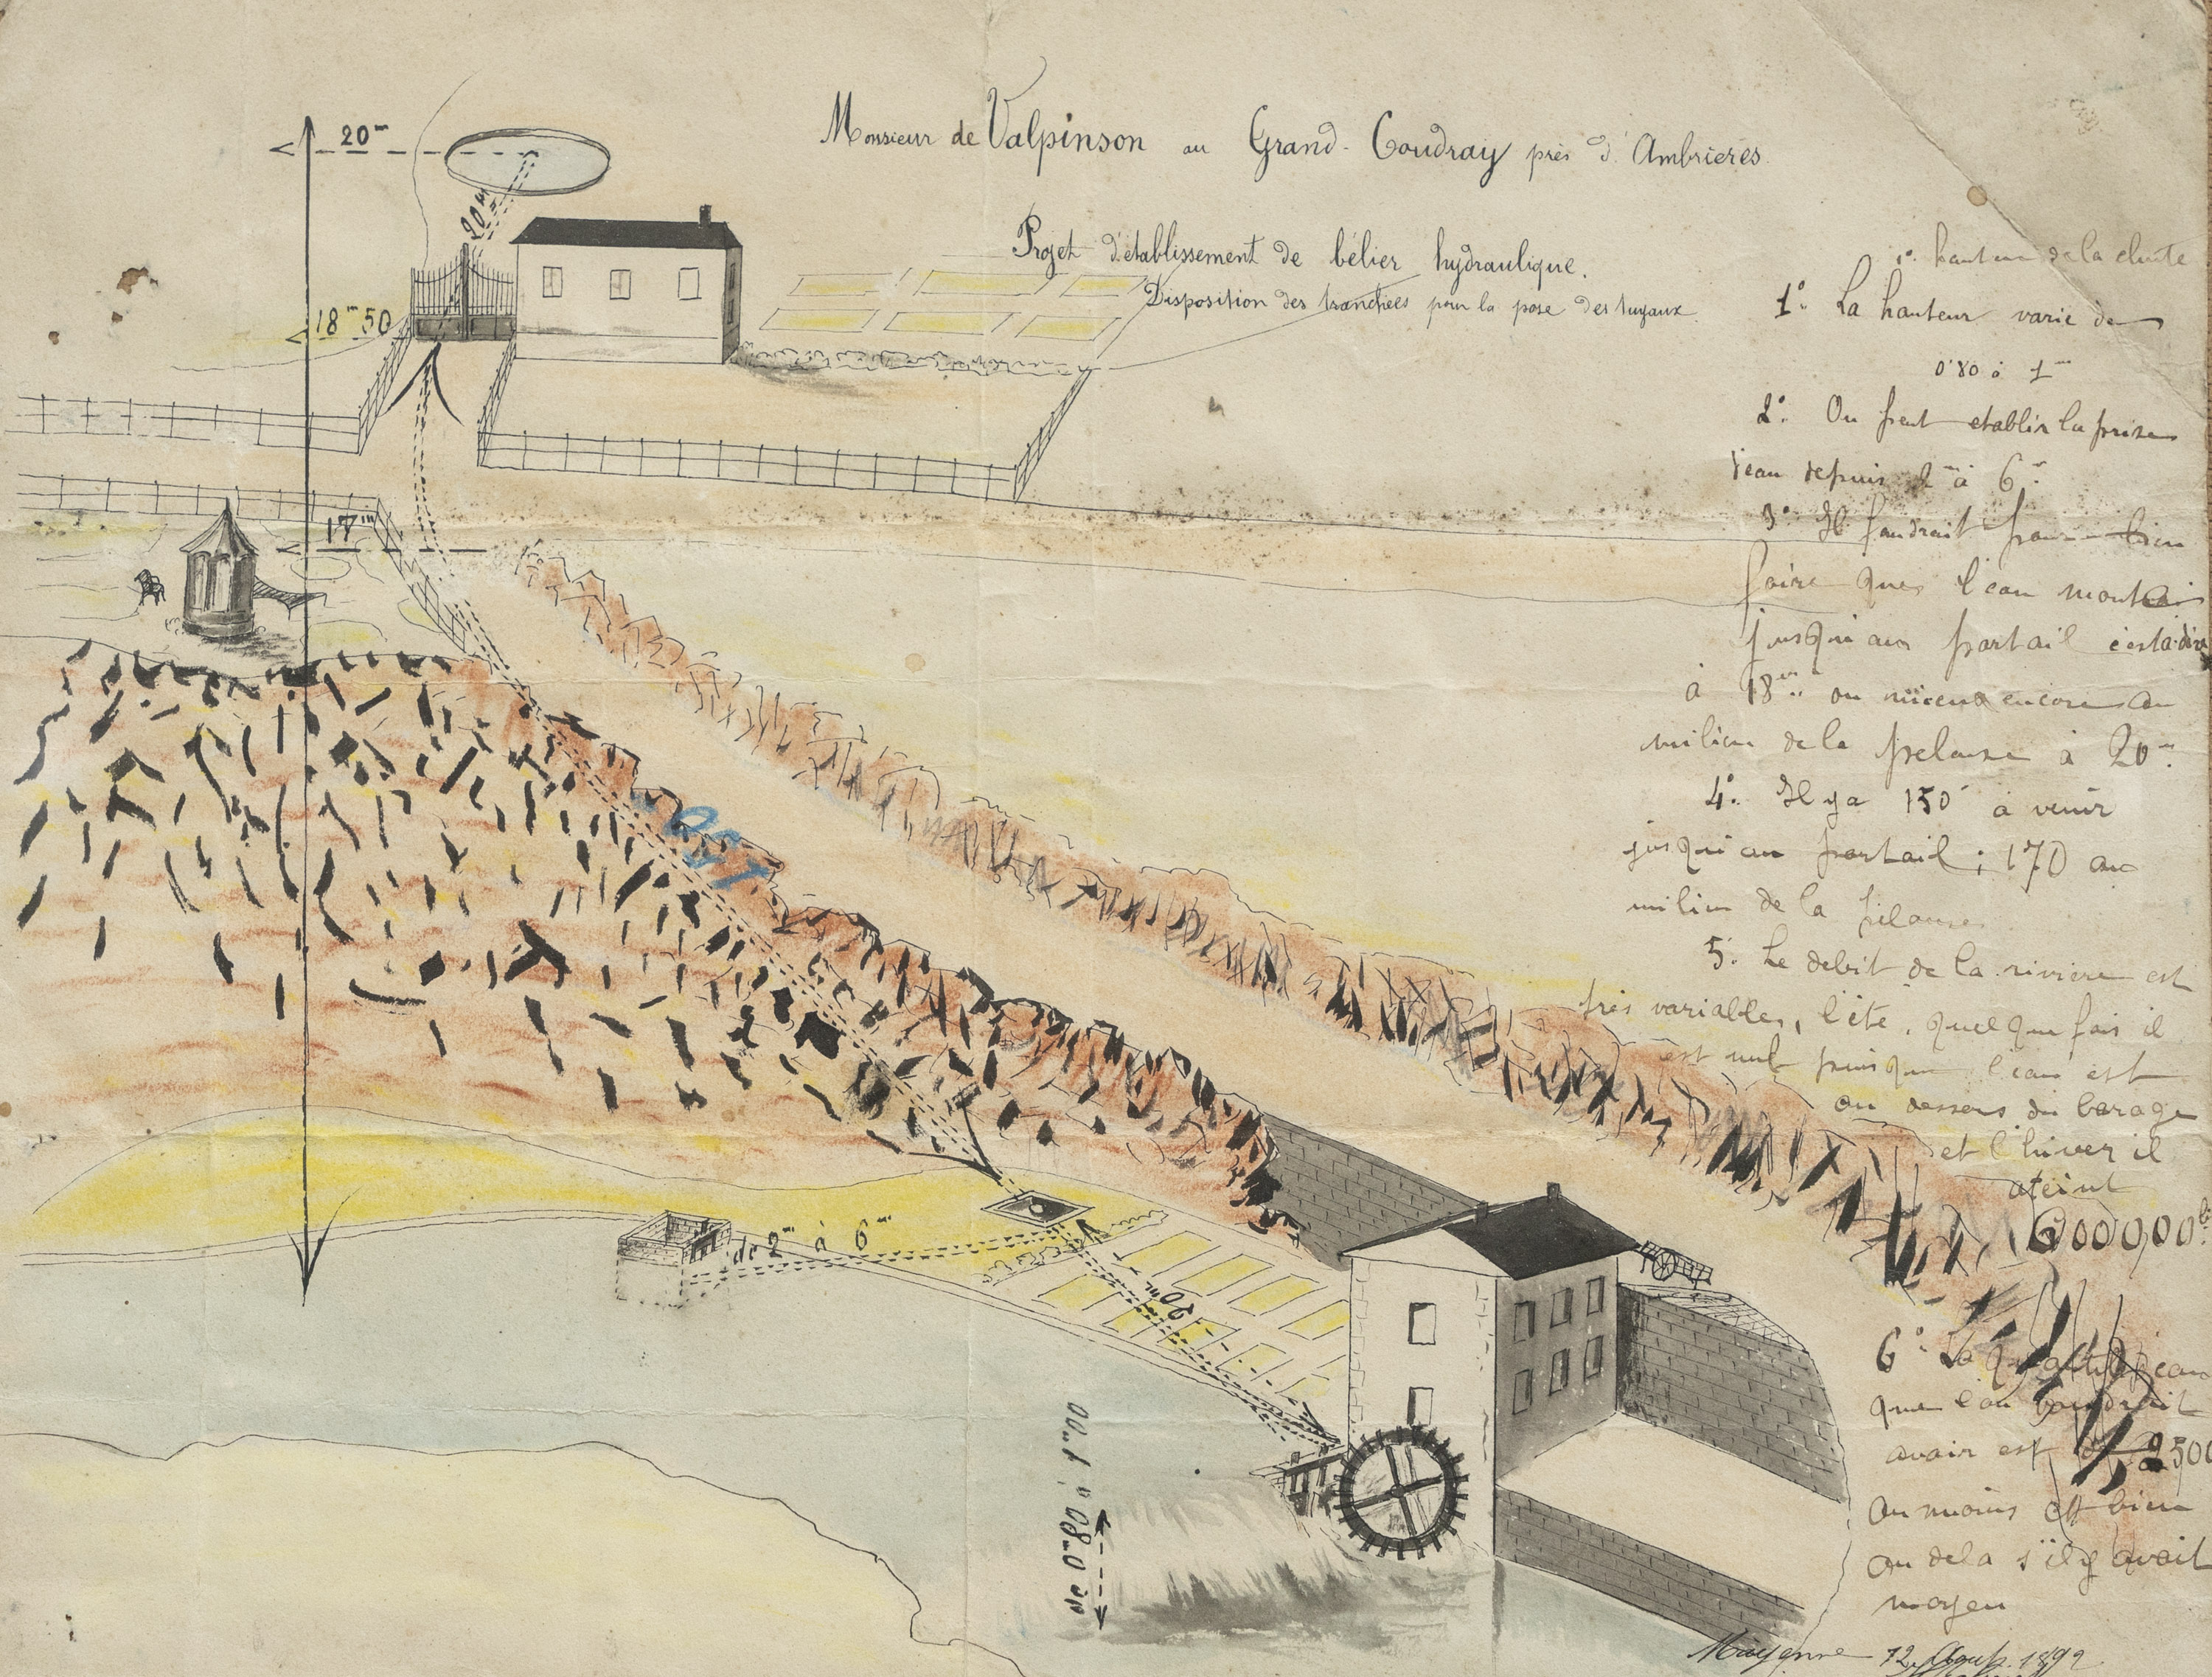 Monsieur de Valpinson au Grand-Coudray près d'Ambrieres
Projet d'établissement de bélier hydraulique.
Disposition des tranchées pour la pose des tuyaux
20m
20m
18m50
17m
150
de 2m à 6m
20m
de 0m80 à 1m00
1° hauteur de la chute
1° La hauteur varie de
0m80 à 1m
2° On peut etablir la prise
d'eau depuis 2m à 6m
3° Il faudrait pour bien
faire que l'eau montais
jusqu'au portail c'est à dire
à 18m ou mieux encore au
milieu de la pelouse à 20m
4° Il y a 150 à venir
jusqu'au portail; 170 au
milieu de la pelouse
5° Le debit de la riviere est
très variable, l'été, quelque fois il
est nul puisque l'eau est
au dessous du barage
et l'hiver il
ateint
6000,00
6° La quantité d'eau
que l'on voudrait
avoir est 2500
au moins et bien
au dela s'il y avait
moyen
Mayenne 12 Août 1892